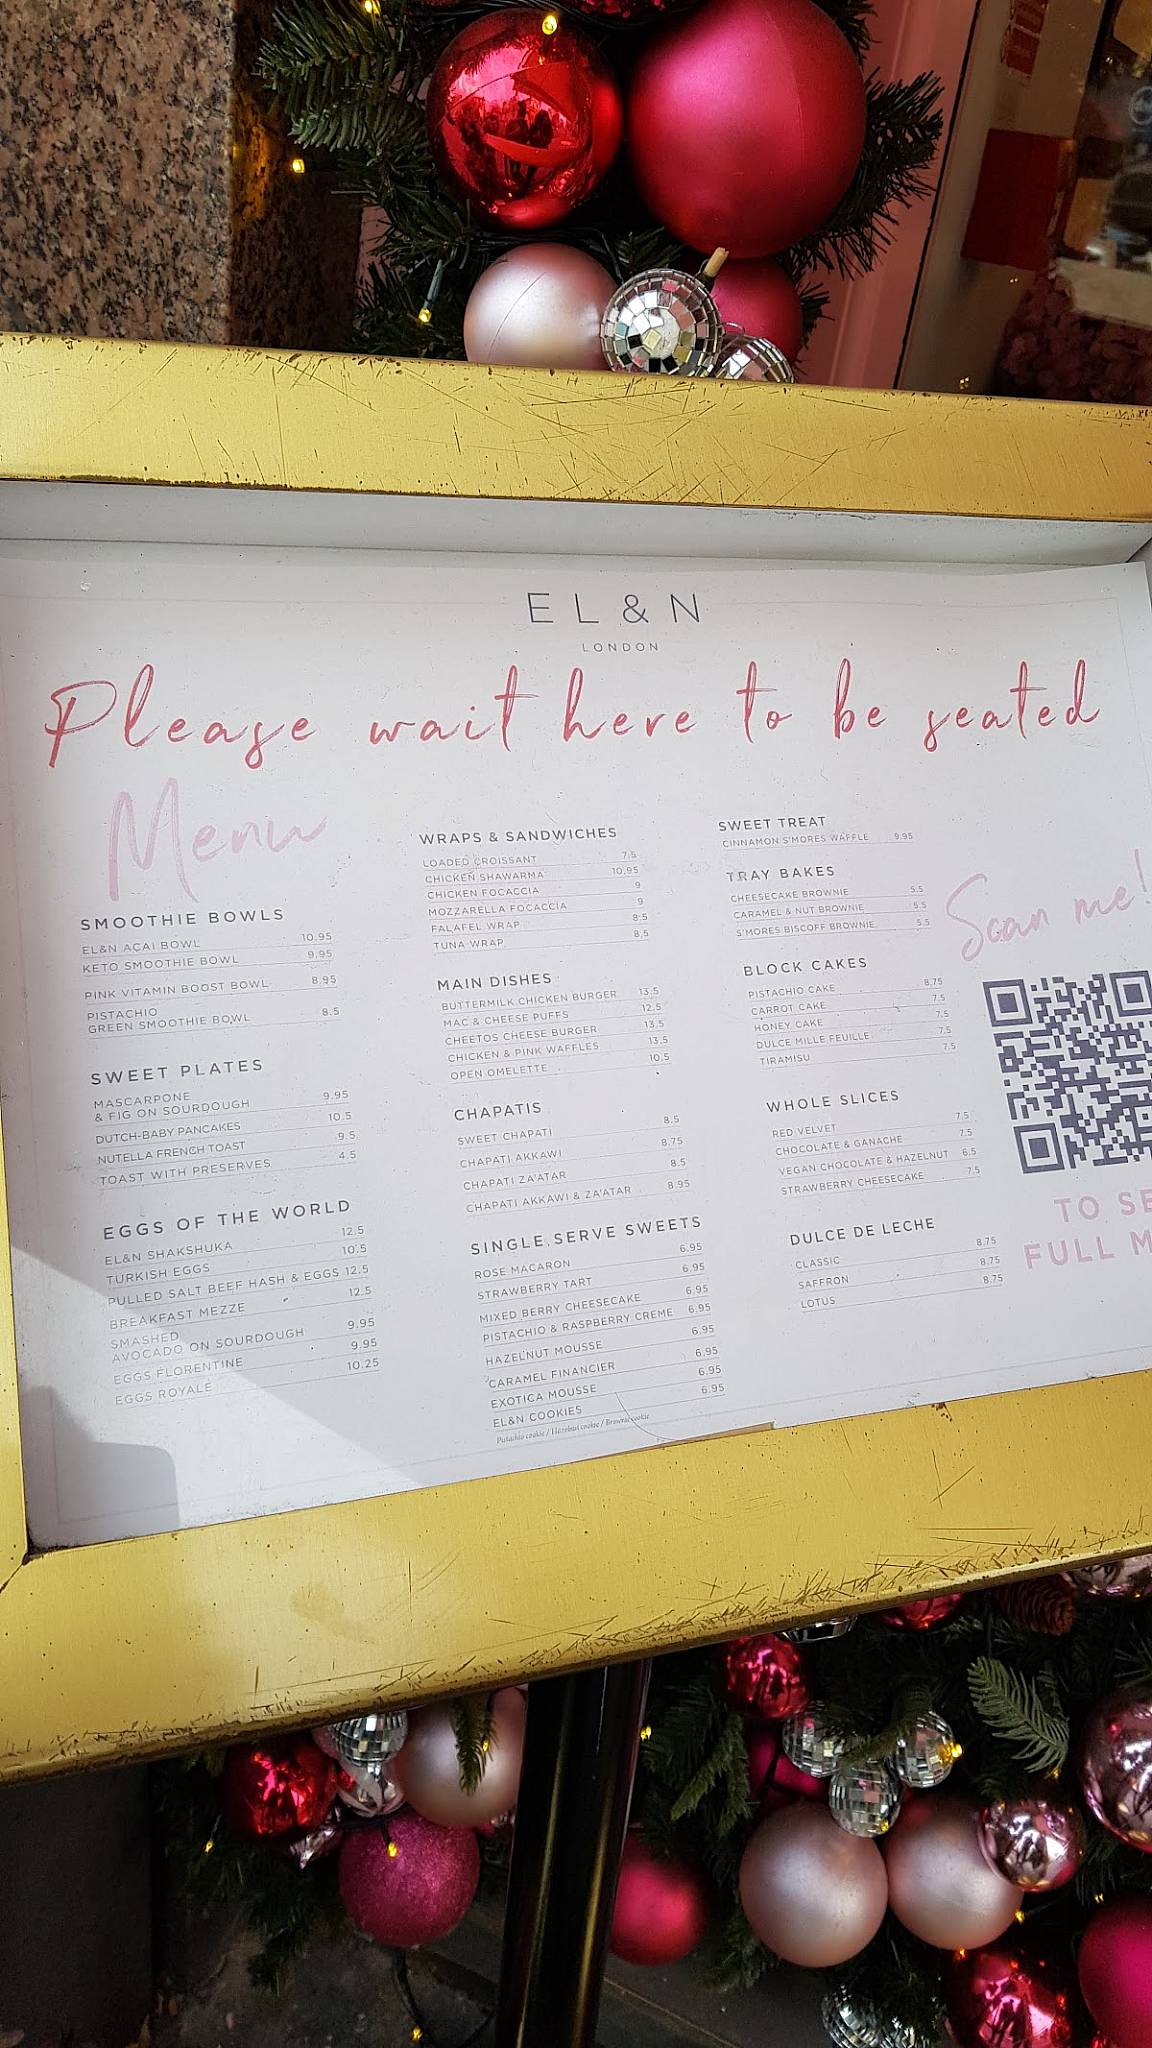 EL&N
LONDON
Please wait here to be seated
Menu
SMOOTHIE BOWLS
EL&N AÇAI BOWL 10.95
KETO SMOOTHIE BOWL 9.95
PINK VITAMIN BOOST BOWL 8.95
PISTACHIO
GREEN SMOOTHIE BOWL 8.5
SWEET PLATES
MASCARPONE
& FIG ON SOURDOUGH 9.95
DUTCH-BABY PANCAKES 10.5
NUTELLA FRENCH TOAST 9.5
TOAST WITH PRESERVES 4.5
EGGS OF THE WORLD
EL&N SHAKSHUKA 12.5
TURKISH EGGS 10.5
PULLED SALT BEEF HASH & EGGS 12.5
BREAKFAST MEZZE 12.5
SMASHED
AVOCADO ON SOURDOUGH 9.95
EGGS FLORENTINE 9.95
EGGS ROYALE 10.25
WRAPS & SANDWICHES
LOADED CROISSANT 7.5
CHICKEN SHAWARMA 10.95
CHICKEN FOCACCIA 9
MOZZARELLA FOCACCIA 9
FALAFEL WRAP 8.5
TUNA WRAP 8.5
MAIN DISHES
BUTTERMILK CHICKEN BURGER 13.5
MAC & CHEESE PUFFS 12.5
CHEETOS CHEESE BURGER 13.5
CHICKEN & PINK WAFFLES 13.5
OPEN OMELETTE 10.5
CHAPATIS
SWEET CHAPATI 8.5
CHAPATI AKKAWI 8.75
CHAPATI ZA'ATAR 8.5
CHAPATI AKKAWI & ZA'ATAR 8.95
SINGLE SERVE SWEETS
ROSE MACARON 6.95
STRAWBERRY TART 6.95
MIXED BERRY CHEESECAKE 6.95
PISTACHIO & RASPBERRY CREME 6.95
HAZELNUT MOUSSE 6.95
CARAMEL FINANCIER 6.95
EXOTICA MOUSSE 6.95
EL&N COOKIES 6.95
Pistachio cookie / Hazelnut cookie / Brownie cookie
SWEET TREAT
CINNAMON S'MORES WAFFLE 9.95
TRAY BAKES
CHEESECAKE BROWNIE 5.5
CARAMEL & NUT BROWNIE 5.5
S'MORES BISCOFF BROWNIE 5.5
BLOCK CAKES
PISTACHIO CAKE 8.75
CARROT CAKE 7.5
HONEY CAKE 7.5
DULCE MILLE FEUILLE 7.5
TIRAMISU 7.5
WHOLE SLICES
RED VELVET 7.5
CHOCOLATE & GANACHE 7.5
VEGAN CHOCOLATE & HAZELNUT 6.5
STRAWBERRY CHEESECAKE 7.5
DULCE DE LECHE
CLASSIC 8.75
SAFFRON 8.75
LOTUS 8.75
Scan me!
TO SE
FULL M